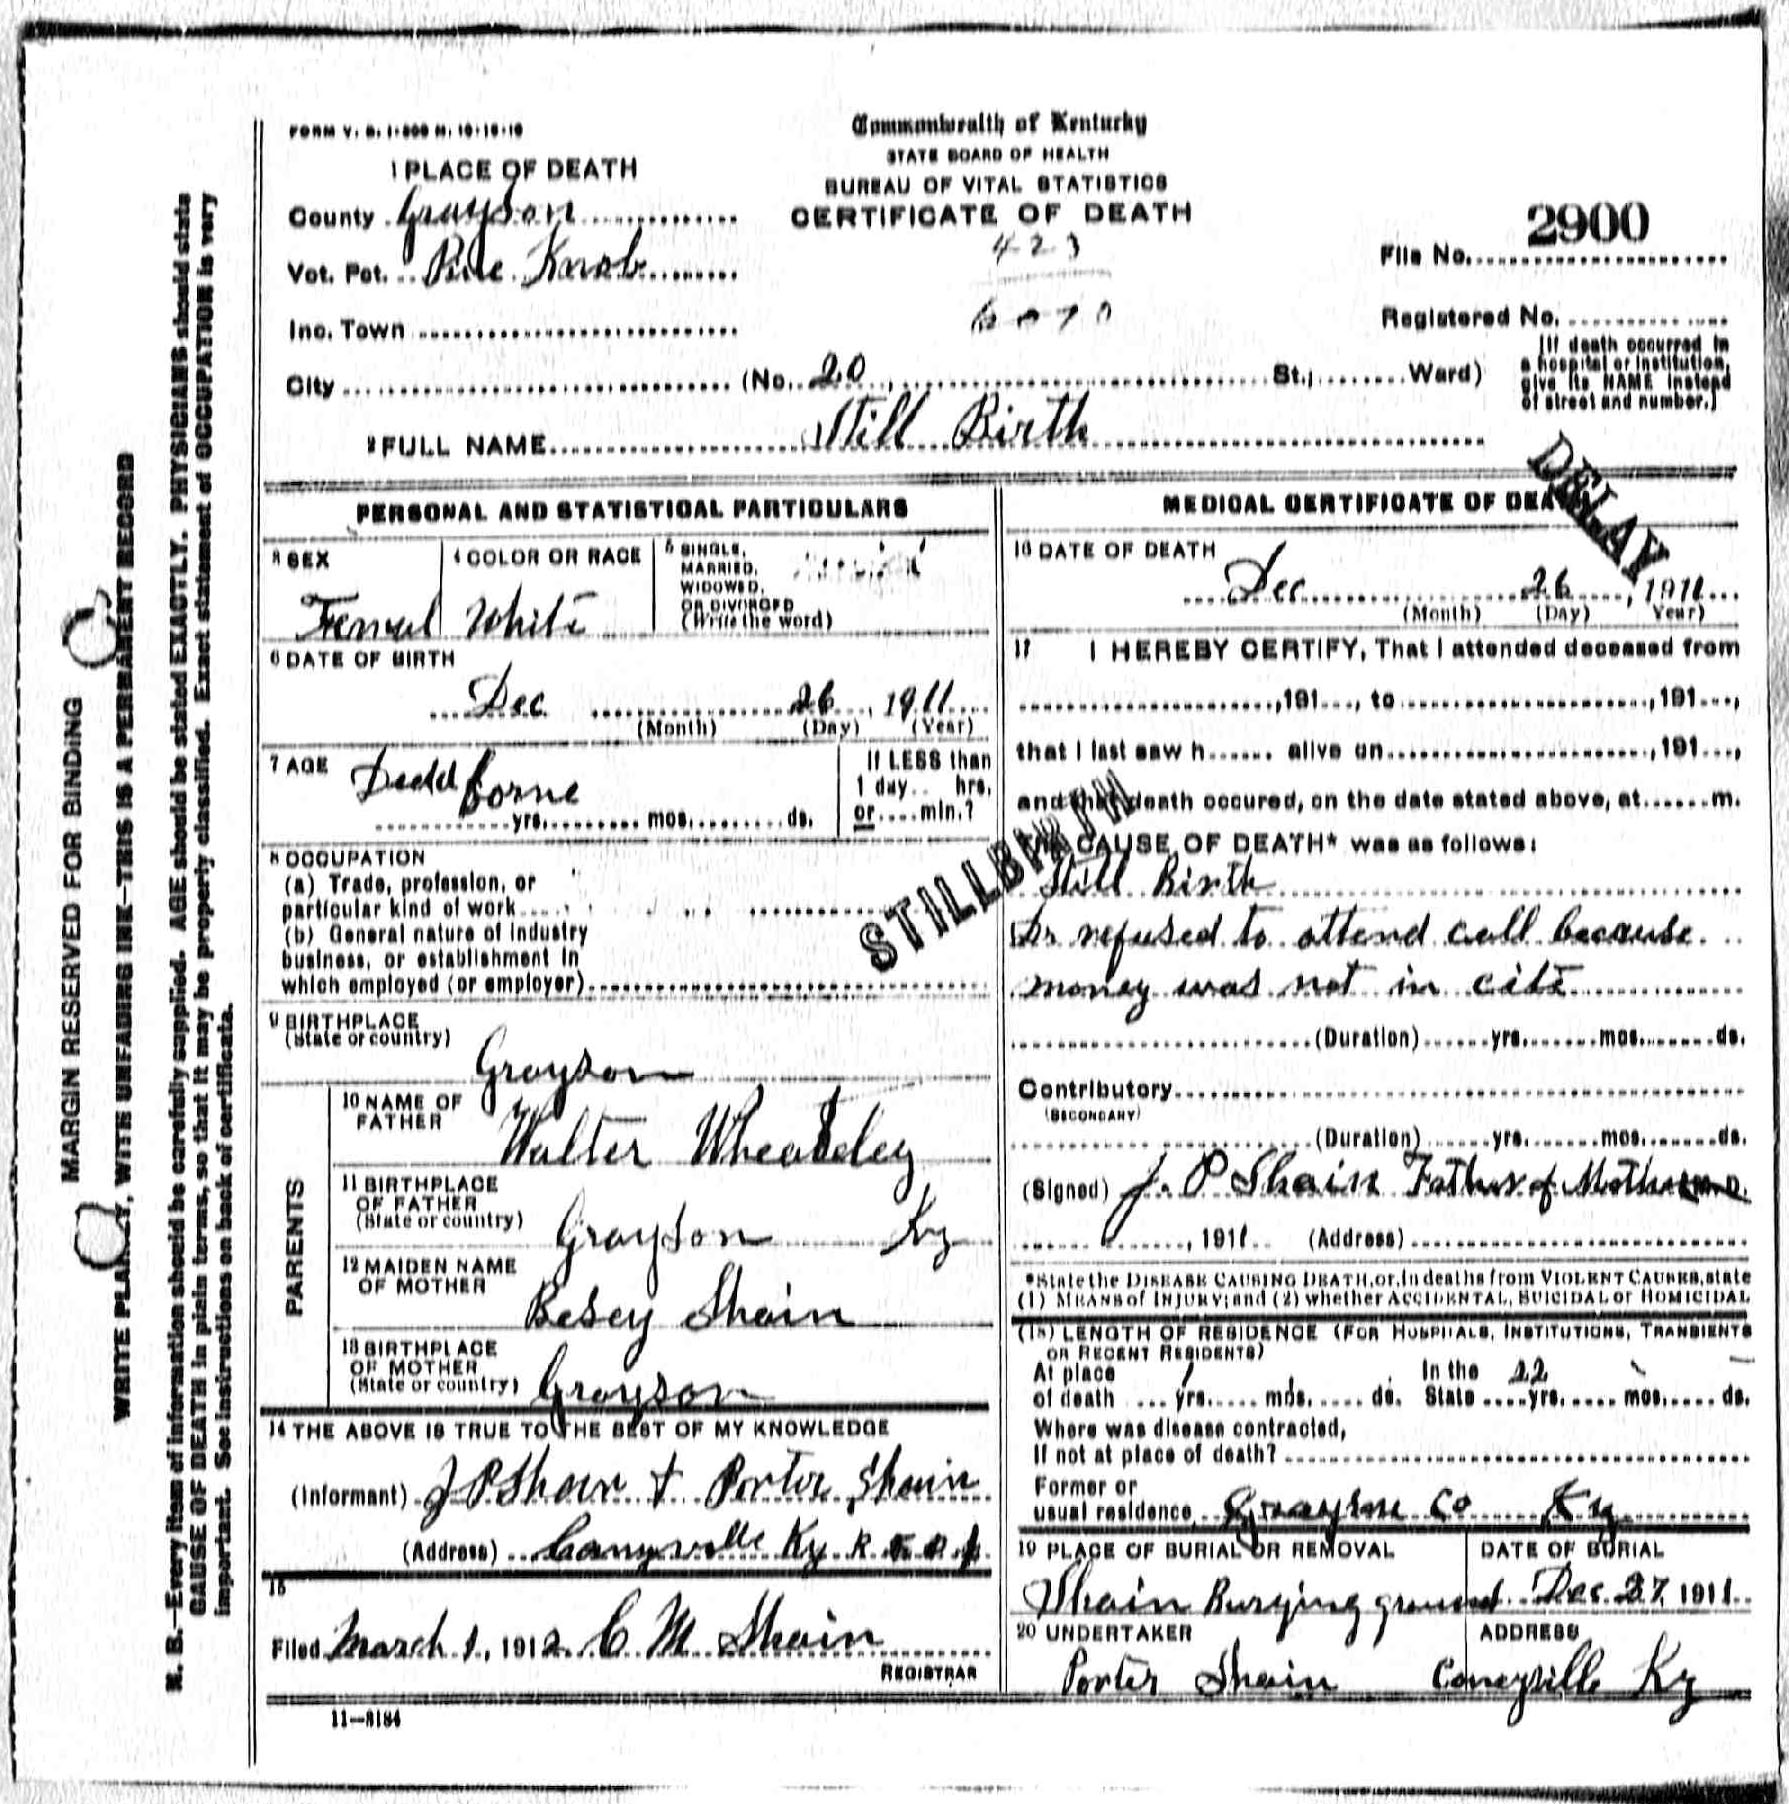 FORM V. S. 1-300 M. 10-18-10
Commonwealth of Kentucky
STATE BOARD OF HEALTH
BUREAU OF VITAL STATISTICS
CERTIFICATE OF DEATH
1 PLACE OF DEATH
County Grayson
Vot. Pct. Pine Knob
Inc. Town
City (No. 20, St.; Ward)
423
6070
File No. 2900
Registered No.
[If death occurred in
a hospital or institution,
give its NAME instead
of street and number.]
2 FULL NAME Still Birth
DELAY
PERSONAL AND STATISTICAL PARTICULARS
3 SEX
Femal
4 COLOR OR RACE
White
5 SINGLE,
MARRIED,
WIDOWED,
OR DIVORCED
(Write the word)
6 DATE OF BIRTH
Dec 26, 1911
(Month) (Day) (Year)
7 AGE
Dedd borne
yrs. mos. ds.
If LESS than
1 day.. hrs.
or....min.?
8 OCCUPATION
(a) Trade, profession, or
particular kind of work
(b) General nature of industry
business, or establishment in
which employed (or employer)
9 BIRTHPLACE
(State or country)
Grayson
PARENTS
10 NAME OF
FATHER
Walter Wheatley
11 BIRTHPLACE
OF FATHER
(State or country)
Grayson Ky
12 MAIDEN NAME
OF MOTHER
Betsey Shain
13 BIRTHPLACE
OF MOTHER
(State or country) Grayson
14 THE ABOVE IS TRUE TO THE BEST OF MY KNOWLEDGE
(Informant) J P Shain + Porter Shain
(Address) Caneyville Ky R
15
Filed March 1, 1912 C M Shain
REGISTRAR
11-8184
MEDICAL CERTIFICATE OF DEATH
16 DATE OF DEATH
Dec 26, 1911
(Month) (Day) Year)
17 I HEREBY CERTIFY, That I attended deceased from
, 191..., to , 191...,
that I last saw h...... alive on , 191...,
and that death occured, on the date stated above, at......m.
STILLBIRTH
The CAUSE OF DEATH* was as follows:
Still Birth
Dr refused to attend call because
money was not in cite
(Duration) yrs. mos. ds.
Contributory
(SECONDARY)
(Duration) yrs. mos. ds.
(Signed) J. P Shain Father of Mother M.D.
, 1911 (Address)
*State the DISEASE CAUSING DEATH, or, in deaths from VIOLENT CAUSES, state
(1) MEANS of INJURY; and (2) whether ACCIDENTAL, SUICIDAL or HOMICIDAL
(18) LENGTH OF RESIDENCE (FOR HOSPITALS, INSTITUTIONS, TRANSIENTS
OR RECENT RESIDENTS)
At place In the 22
of death yrs. mos. ds. State yrs. mos. ds.
Where was disease contracted,
If not at place of death?
Former or
usual residence Grayson Co Ky
19 PLACE OF BURIAL OR REMOVAL
Shain Burying ground
DATE OF BURIAL
Dec. 27, 1911
20 UNDERTAKER
Porter Shain
ADDRESS
Caneyville Ky
MARGIN RESERVED FOR BINDING
WRITE PLAINLY, WITH UNFADING INK—THIS IS A PERMANENT RECORD
N. B.—Every item of information should be carefully supplied. AGE should be stated EXACTLY. PHYSICIANS should state
CAUSE OF DEATH in plain terms, so that it may be properly classified. Exact statement of OCCUPATION is very
important. See instructions on back of certificate.